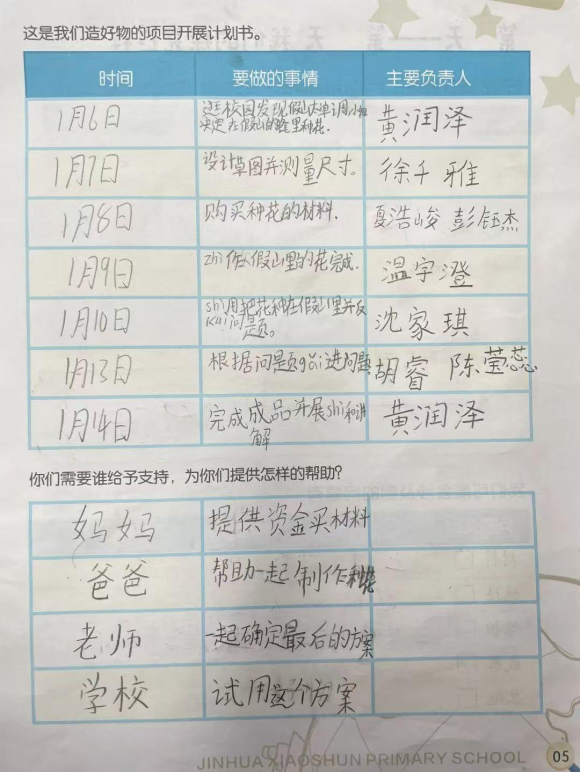 这是我们造好物的项目开展计划书。
时间 要做的事情 主要负责人
1月6日 逛校园发现假山太单调小组 黄润泽
决定在假山的缝里种花.
1月7日 设计草图并测量尺寸。 徐千雅
1月8日 购买种花的材料. 夏浩峻 彭钰杰
1月9日 zhi作假山里的花完成. 温宇澄
1月10日 shi用把花种在假山里并反 沈家琪
kui问题。
1月13日 根据问题gǎi进问题 胡睿 陈莹蕊
1月14日 完成成品并展shi和讲 黄润泽
解
你们需要谁给予支持，为你们提供怎样的帮助？
妈妈 提供资金买材料
爸爸 帮助一起制作种花
老师 一起确定最后的方案
学校 试用这个方案
JINHUA XIAOSHUN PRIMARY SCHOOL
05